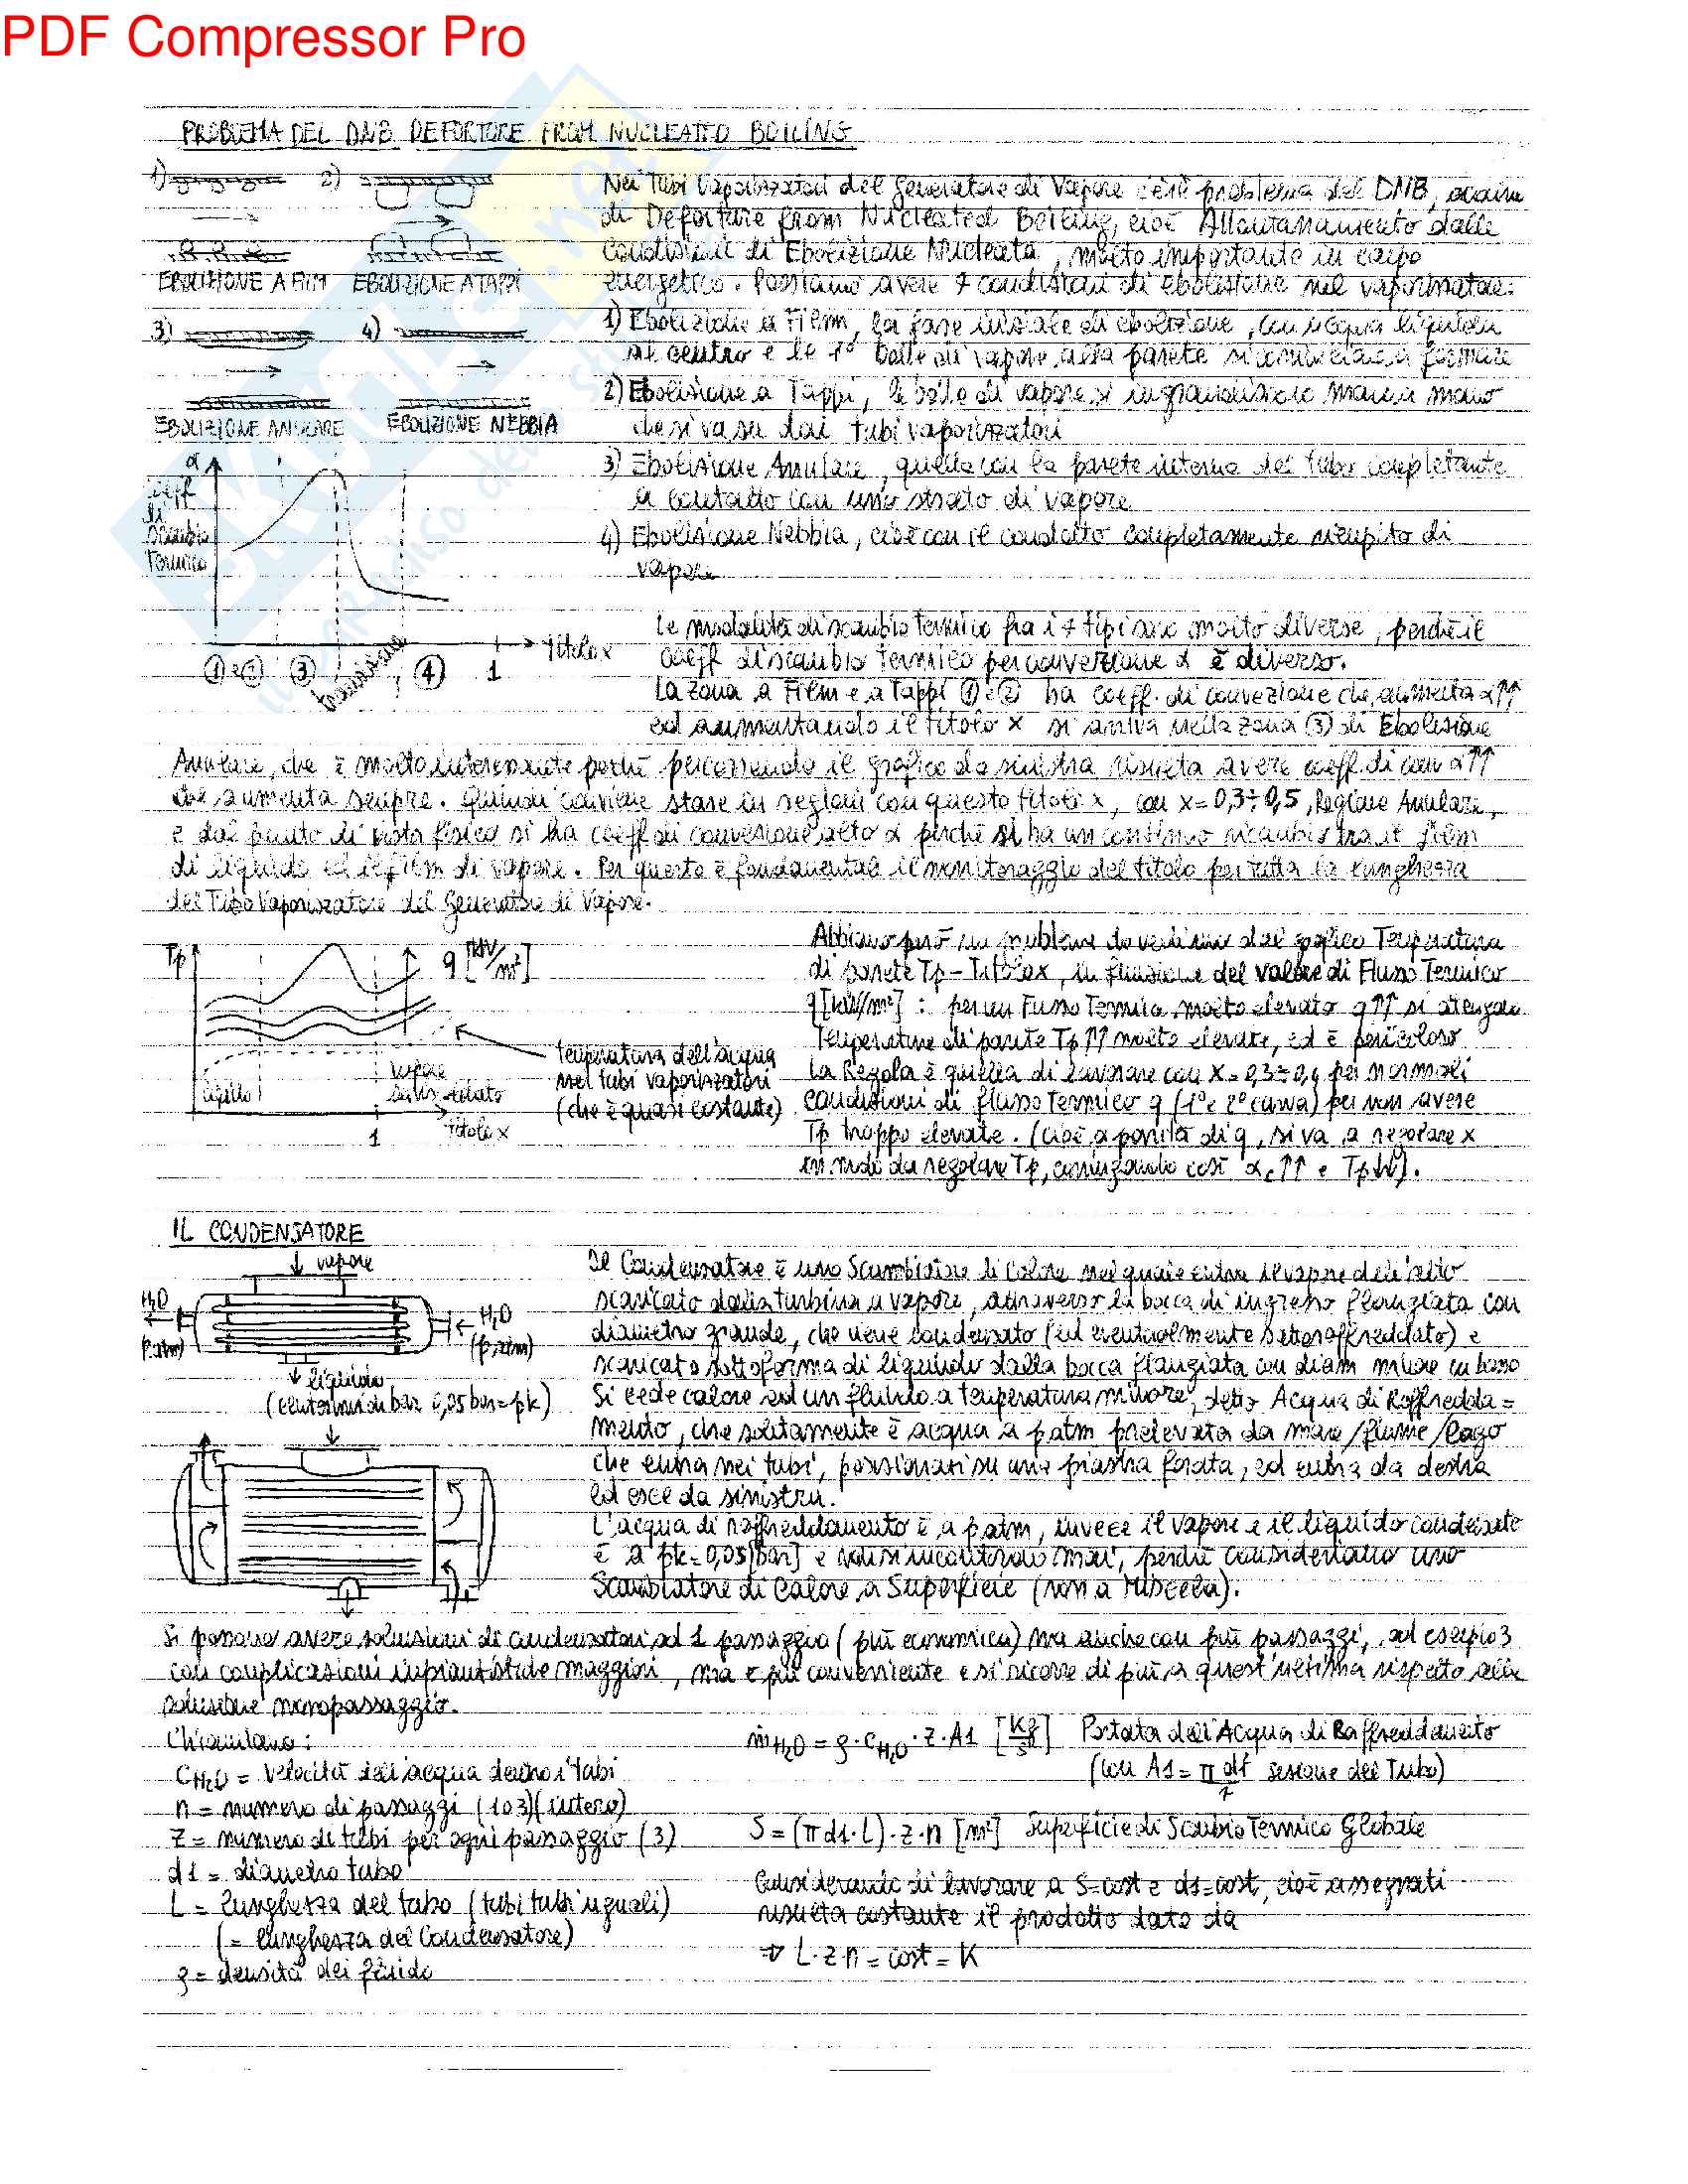 PDF Compressor Pro
PROBLEMA DEL DNB DEFORTORE FROM NUCLEATED BOILING
1) 2)
EBOLIZIONE A FILM EBOLIZIONE A TAPPI
3) 4)
EBOLIZIONE ANULARE EBOLIZIONE NEBBIA
Nei Tubi Vaporizzatori del Generatore di Vapore c'è il problema del DNB, ovvero
di Deforture from Nucleated Boiling, cioè Allontanamento dalle
Condizioni di Ebolizione Nucleata, molto importante in campo
energetico. Possiamo avere 4 condizioni di ebolizione nel vaporizzatore:
1) Ebolizione a Film, la fase iniziale di ebolizione, con acqua liquida
al centro e le 1° bolle di vapore alla parete si cominciano a formare
2) Ebolizione a Tappi, le bolle di vapore si ingrandiscono mano a mano
che si va su dai tubi vaporizzatori
3) Ebolizione Anulare, quella con la parete interna del tubo completante
a contatto con uno strato di vapore
4) Ebolizione Nebbia, cioè con il condotto completamente riempito di
vapore
α
coeff
di
scambio
Termico
Titolo x
1 e 2 3 transizione 4 1
Le modalità di scambio Termico fra i 4 tipi sono molto diverse, perché il
coeff di scambio Termico per convezione α è diverso.
La zona a Film e a Tappi 1 e 2 ha coeff. di convezione che aumenta α↑↑
ed aumentando il titolo x si arriva nella zona 3 di Ebolizione
Anulare, che è molto interessante perché percorrendo il grafico da sinistra risulta avere coeff. di conv α↑↑
che aumenta sempre. Quindi conviene stare in regioni con questo titolo x, con x = 0,3÷0,5, Regione Anulare,
e dal punto di vista fisico si ha coeff di convezione alto α perché si ha un continuo ricambio tra il film
di liquido ed il film di vapore. Per questo è fondamentale il monitoraggio del titolo per tutta la lunghezza
del Tubo Vaporizzatore del Generatore di Vapore.
Tp q [kW/m²]
temperatura dell'acqua
nei tubi vaporizzatori
(che è quasi costante)
liquido vapore
surriscaldato
1 titolo x
Abbiamo però un problema da vedere dal grafico Temperatura
di parete Tp - Titolo x, in funzione del valore di Flusso Termico
q [kW/m²] : per un Flusso Termico molto elevato q↑↑ si ottengono
Temperature di parete Tp↑↑ molto elevate, ed è pericoloso
La Regola è quella di lavorare con x = 0,3÷0,4 per normali
condizioni di flusso Termico q (1° e 2° curva) per non avere
Tp troppo elevate. (cioè, a parità di q, si va a regolare x
in modo da regolare Tp, così α↑↑ e Tp↓↓).
IL CONDENSATORE
vapore
H2O H2O
(p.atm) (p.atm)
liquido
(centesimi di bar 0,05 bar = pk)
Il Condensatore è uno Scambiatore di Calore nel quale entra il vapore dall'alto
scaricato dalla turbina a vapore, attraverso la bocca di ingresso flangiata con
diametro grande, che viene condensato (ed eventualmente sottoraffreddato) e
scaricato sottoforma di liquido dalla bocca flangiata con diam minore in basso
Si cede calore ad un fluido a temperatura minore, detto Acqua di Raffredda=
mento, che solitamente è acqua a p.atm prelevata da mare/fiume/lago
che entra nei tubi, posizionati su una piastra forata, ed entra da destra
ed esce da sinistra.
L'acqua di raffreddamento è a p.atm, invece il vapore e il liquido condensato
è a pk = 0,05 [bar] e non si incontrano mai, perché consideriamo uno
Scambiatore di Calore a Superficie (non a Miscela).
Si possono avere soluzioni di condensatori ad 1 passaggio (più economica) ma anche con più passaggi, ad esempio 3
con complicazioni impiantistiche maggiori, ma è più conveniente e si ricorre di più a quest'ultima rispetto alla
soluzione monopassaggio.
Chiamiamo:
cH2O = velocità dell'acqua dentro i tubi
n = numero di passaggi (1 o 3) (intero)
z = numero di tubi per ogni passaggio (3)
d1 = diametro tubo
L = lunghezza del tubo (tubi tutti uguali)
(= lunghezza del Condensatore)
ρ = densità del fluido
ṁH2O = ρ · cH2O · z · A1 [Kg/s] Portata dell'Acqua di Raffreddamento
(con A1 = π d1²/4 sezione del Tubo)
S = (π d1 · L) · z · n [m²] Superficie di Scambio Termico Globale
Considerando di lavorare a S=cost e d1=cost, cioè assegnati
risulta costante il prodotto dato da
⇒ L · z · n = cost = K